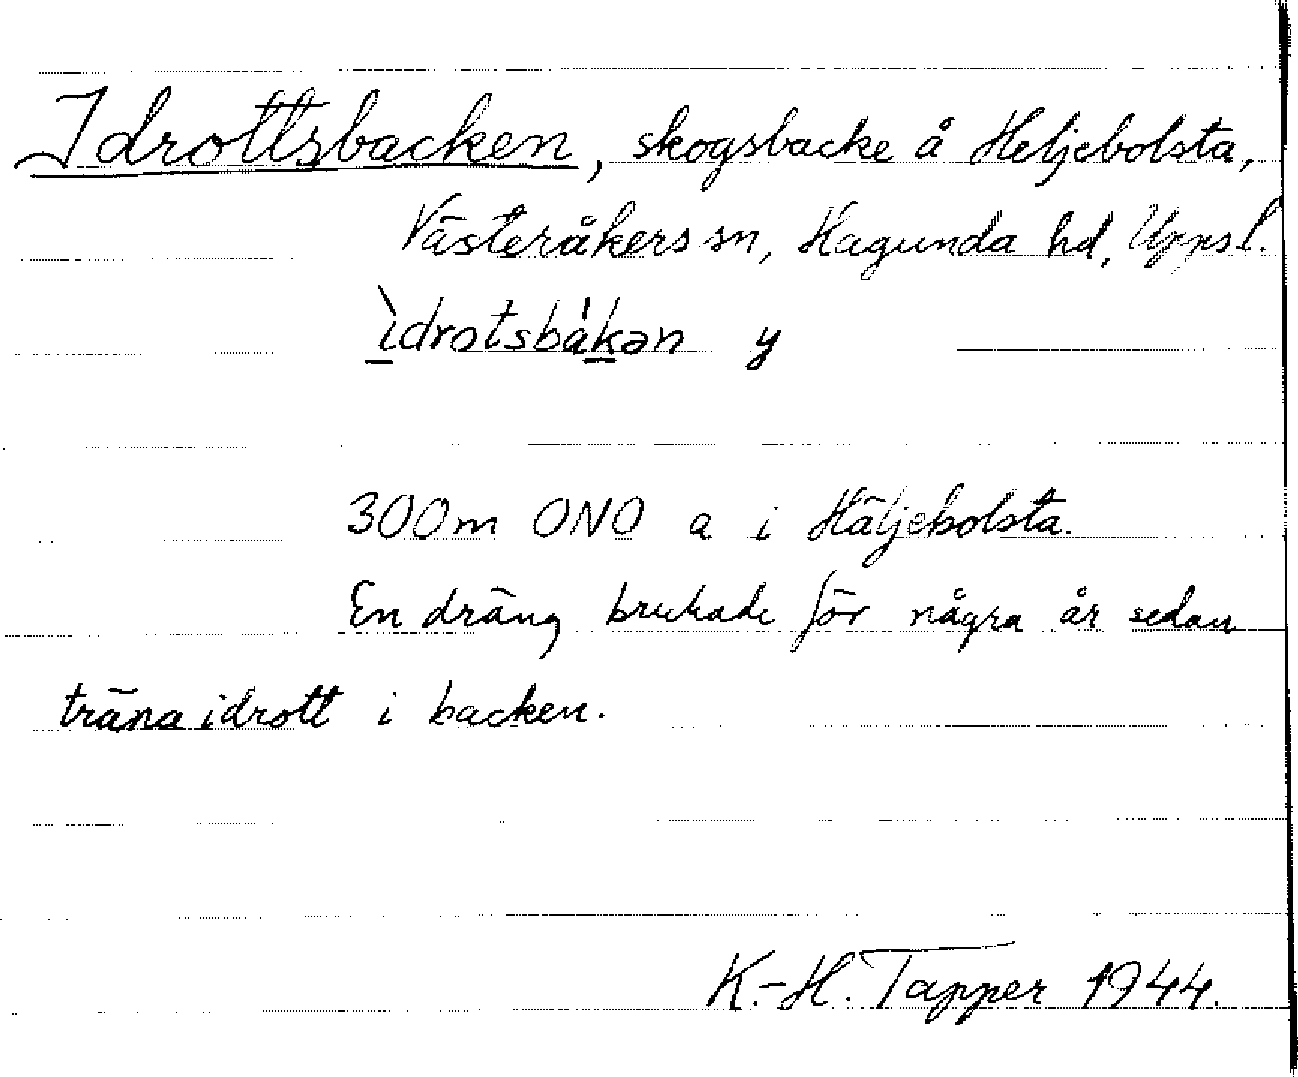 Idrottsbacken, skogsbacke å Heljebolsta,
Västeråkers sn, Hagunda hd, Uppsl.
ìdrotsbákən y
300m ONO a i Häljebolsta.
En dräng brukade för några år sedan
träna idrott i backen.
K.-H. Tapper 1944.